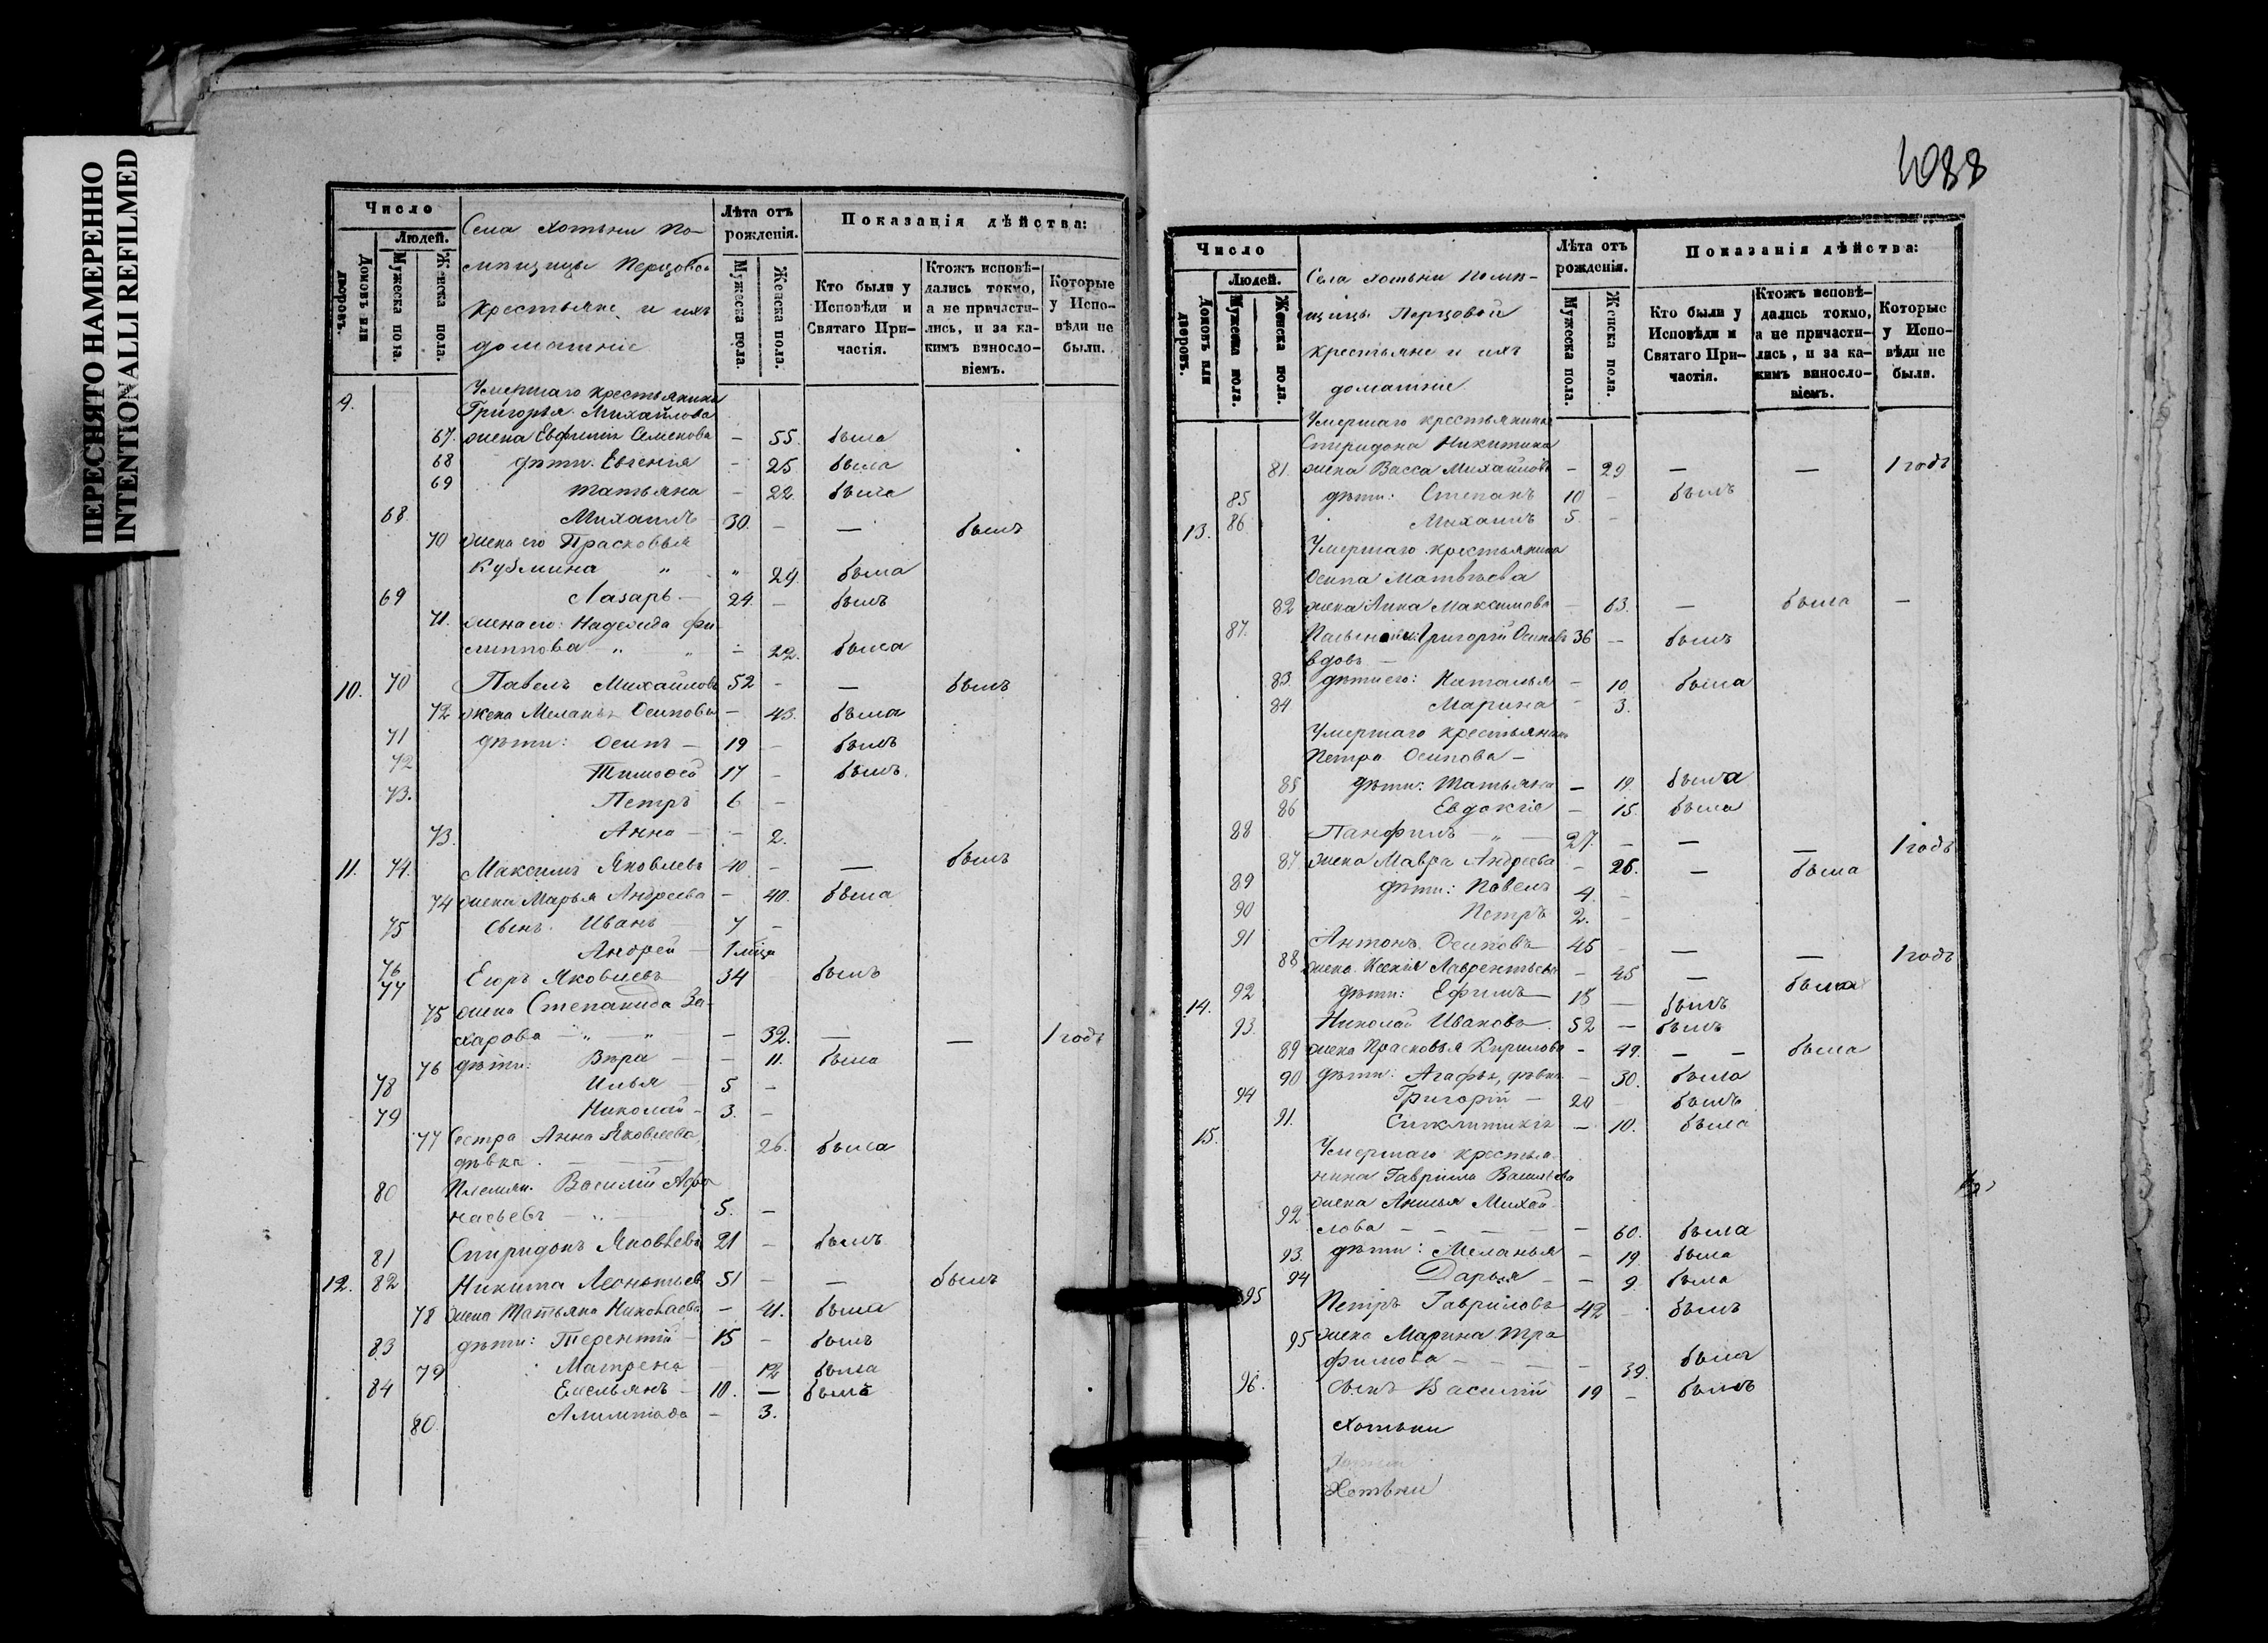 ПЕРЕСНЯТО НАМЕРЕННО
INTENTIONALLI REFILMED
Число
Людей.
Домовъ или дворовъ.
Мужеска пола.
Женска пола.
Села Хотьни По-
мѣщицы Перцовой
крестьяне и ихъ
домашніе
Лѣта отъ рожденія.
Мужеска пола.
Женска пола.
Показація дѣйства:
Кто были у Исповѣди и Святаго Причастія.
Ктожъ исповѣ-дались токмо, а не причасти-лись, и за ка-кимъ винosло-віемъ.
Которые у Испо-вѣди не были.
9. Умершаго крестьянина
Григорья Михайлова
67. жена Евфимія Семенова – 55. была
68 дѣти: Евгенія – 25. была
69 Татьяна – 22. была
68. Михаилъ 30. – — былъ
70 жена его Прасковья
Кузмина „ „ 29. была
69 Лазарь – 24. – былъ
71. жена его: Надежда Фи-
липпова „ „ – 22. была
10. 70 Павелъ Михайловъ 52 – — былъ
72 жена Меланья Осипова – 43. была
71 дѣти: Осипъ – 19 – былъ
72 Тимофей 17 – былъ.
73. Петръ 6 –
73. Анна – – 2.
11. 74. Максимъ Яковлевъ 40 – — былъ
74 жена Марья Андреева – 40. была
75 сынъ: Иванъ 7 –
76 Андрей – 1 мѣца
77 Егоръ Яковлевъ 34 былъ
75 жена Степанида За-
харова – „ – „ – 32. — — 1 годъ
76 дѣти: Вѣра – – 11. была
78 Илья 5 –
79 Николай – 3. –
77 Сестра Анна Яковлева,
дѣвка. 26. была
80 Племян. Василій Афа
насьевъ – „ – 5. –
81 Спиридонъ Яковлевъ 21 – былъ
12. 82 Никита Леонтьевъ 51 – — былъ
78 жена Татьяна Николаева – 41. была
83 дѣти: Терентій – 15 – былъ
79 Матрена – 12 была
84 Емельянъ – 10. — былъ
80. Алимпіада – 3.
1088
Число
Людей.
Домовъ или дворовъ.
Мужеска пола.
Женска пола.
Села Хотьни Помѣ-
щицы Перцовой
крестьяне и ихъ
домашніе
Лѣта отъ рожденія.
Мужеска пола.
Женска пола.
Показанія дѣйства:
Кто были у Исповѣди и Святаго При-частія.
Ктожъ исповѣ-дались токмо, а не причасти-лись, и за ка-кимъ винocло-віемъ.
Которые у Испо-вѣди не были.
Умершаго крестьянина
Спиридона Никитина
81. жена Васса Михайлова – 29 — — 1 годъ
85 дѣти: Степанъ 10 – былъ
86 Михаилъ 5. –
13. Умершаго крестьянина
Осипа Матвѣева
82 жена Анна Максимова – 63. — была —
87. Григорій Осиповъ 36 – былъ
вдовъ –
83. дѣти его: Наталья – 10 была
84 Марина – 3.
Умершаго крестьянина
Петра Осипова –
85 дѣти: Татьяна – 19. была
86 Евдокія – 15. была
88 Панфилъ – „ – 27. – — — 1 годъ
87. жена Мавра Андреева – 26. — была
89 дѣти: Павелъ 4. –
90 Петръ 2. –
91 Антонъ Осиповъ 45 – — — 1 годъ
88 жена Ксенія Лаврентьева – 45 — была
92 дѣти: Ефимъ 15 — былъ
14. 93. Николай Ивановъ 52 – былъ
89 жена Прасковья Кирилова – 49. – – была
90 дѣти: Агафья, дѣвка – 30. была
94 Григорій – 20 – былъ
91. Синклитикія – 10. была
15. Умершаго крестья-
нина Гавріила Васильева
92 жена Анисья Михай-
лова – – – – – 60. была
93. дѣти: Меланья – 19 была
94 Дарья – – 9 была
95 Петръ Гавриловъ 42 – былъ
95 жена Марина Тра
фимова – – – – 39. была
96. сынъ Василій 19 – былъ
Хотьни
Хотьни